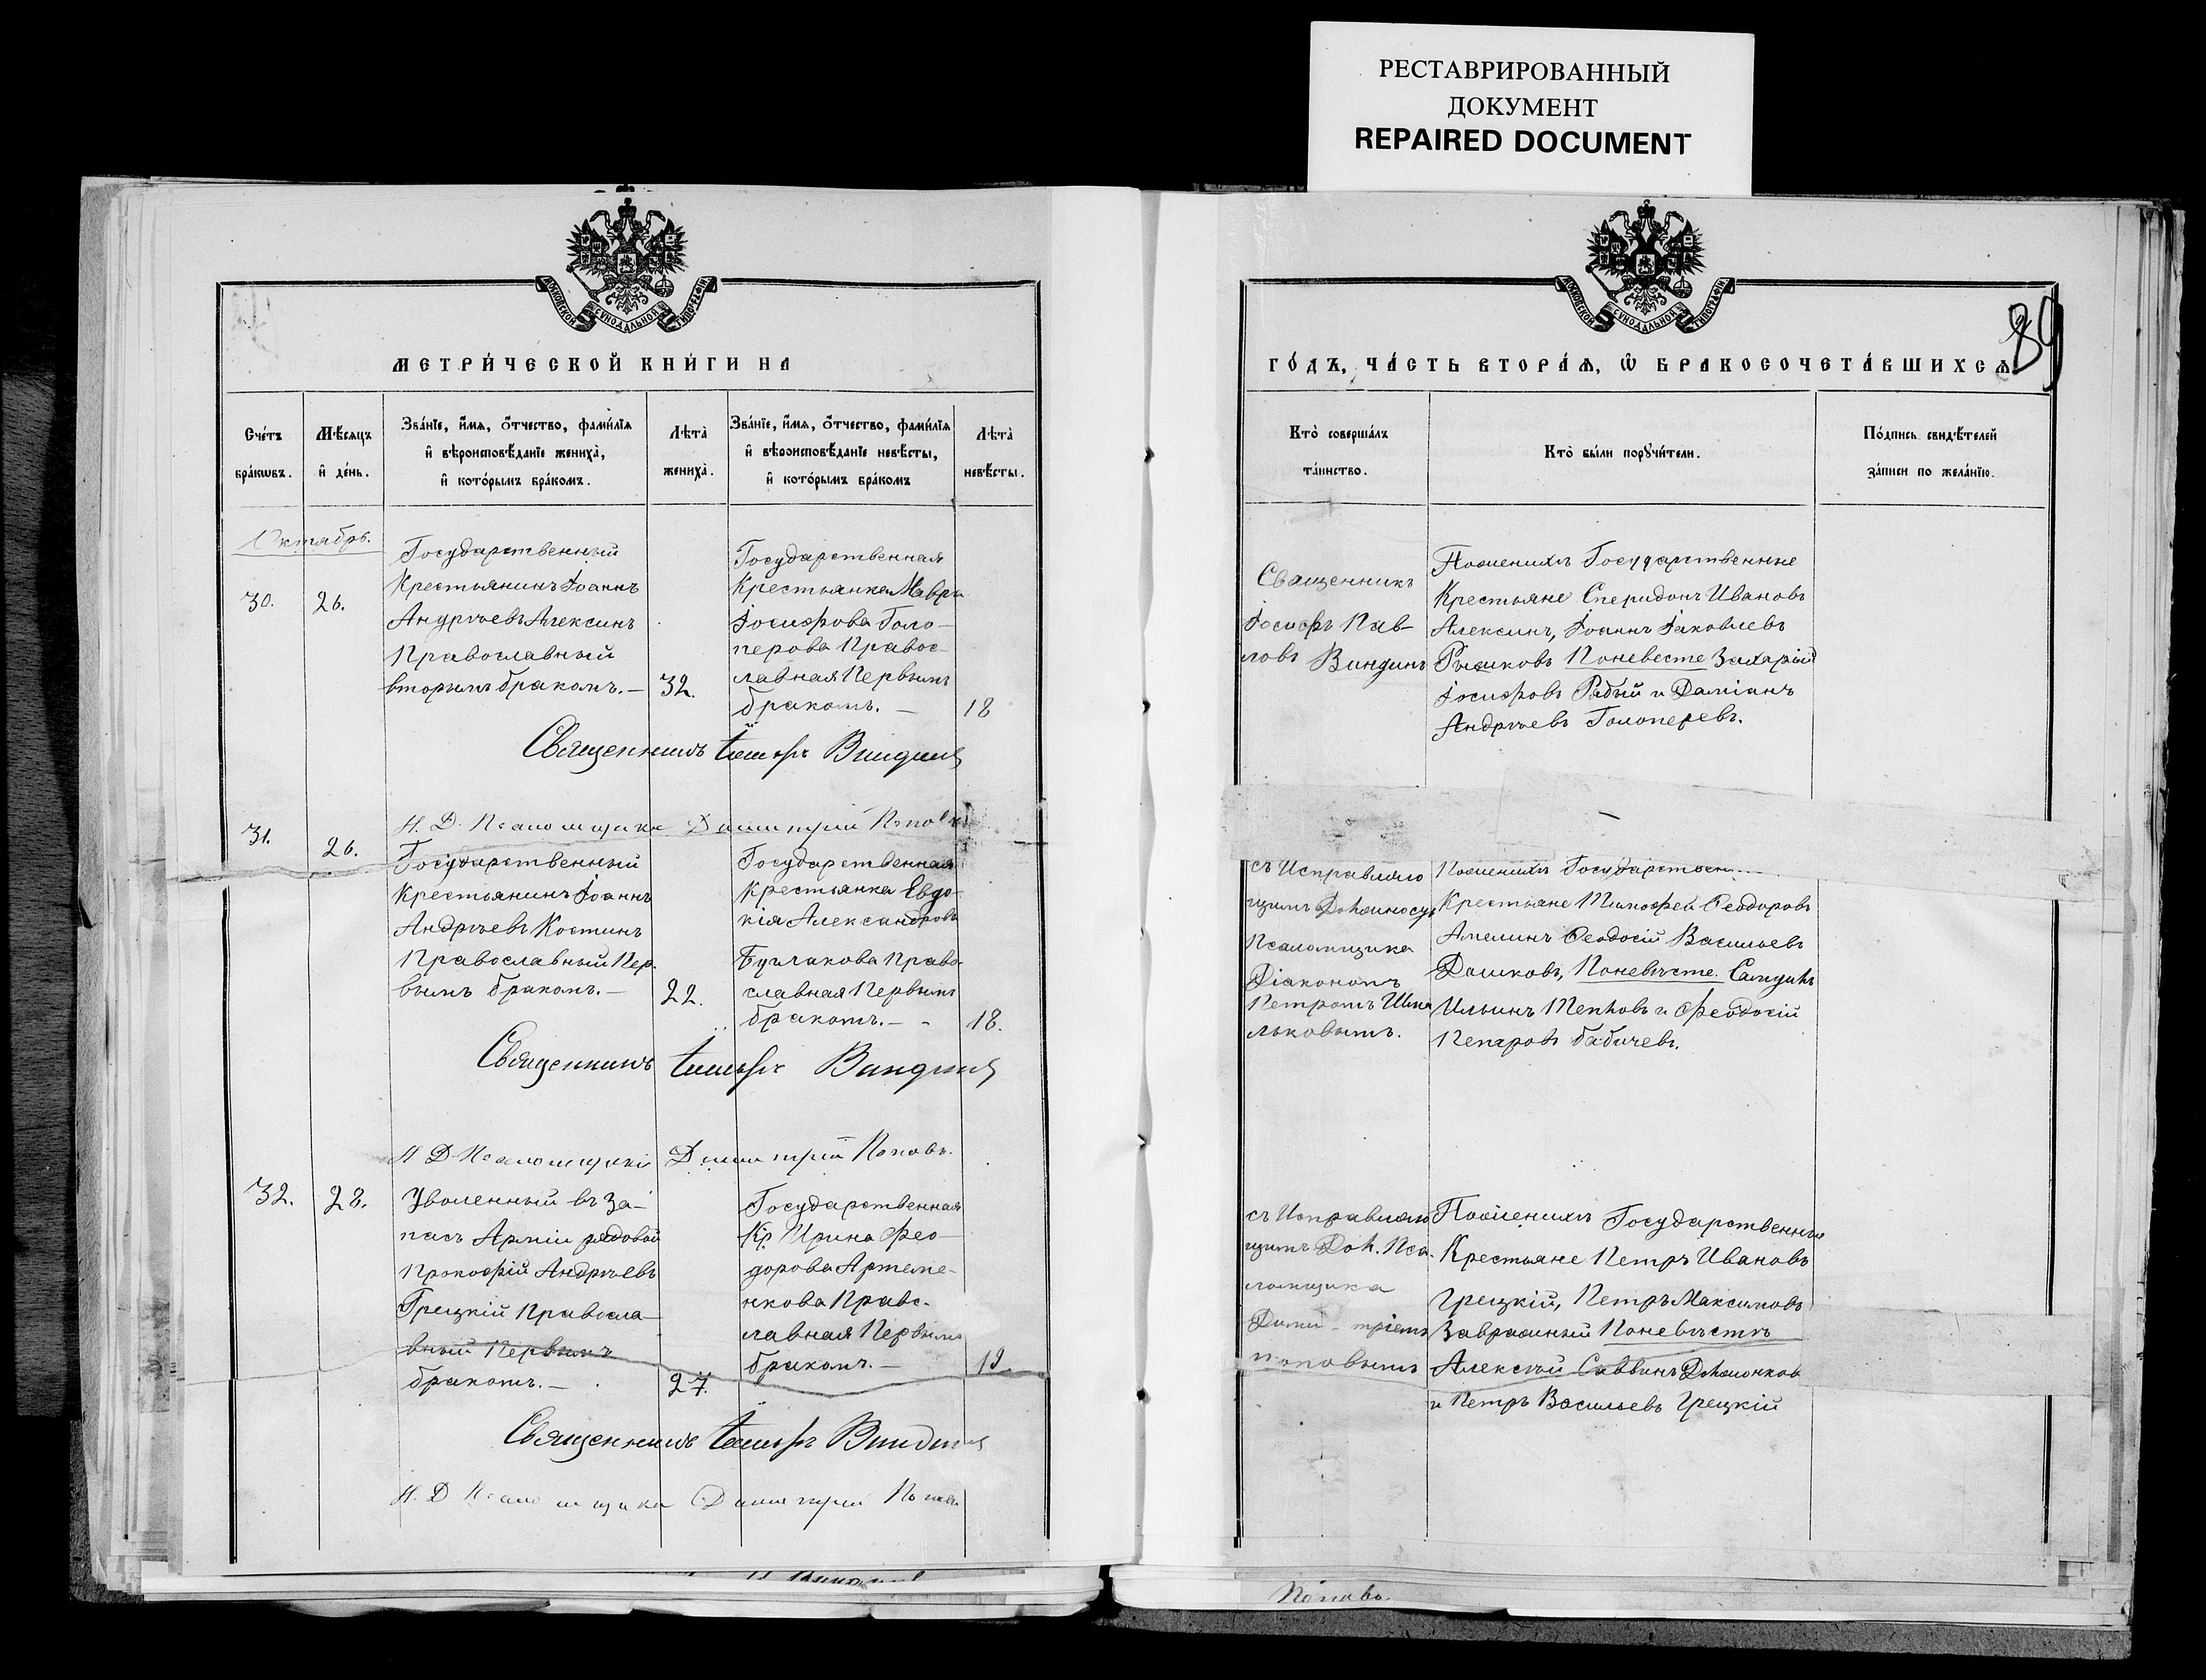 РЕСТАВРИРОВАННЫЙ
ДОКУМЕНТ
REPAIRED DOCUMENT
МОСКОВСКОЙ СѴНОДАЛЬНОЙ ТИПОГРАФІИ
МЕТРИ́ЧЕСКОЙ КНИ́ГИ НА
Сче́тъ бра́кѡвъ.
Мѣ́сяцъ и҆ де́нь.
Зва́нїе, и҆́мя, о҆́тчество, фами́лїя
и҆ вѣроисповѣ́данїе жениха̀,
и҆ кото́рымъ бра́комъ.
Лѣта̀ жениха̀.
Зва́нїе, и҆́мя, о҆́тчество, фами́лїя
и҆ вѣроисповѣ́данїе невѣ́сты,
и҆ кото́рымъ бра́комъ
Лѣта̀ невѣ́сты.
Октябрь.
30.
26.
Государственный
Крестьянинъ Іоаннъ
Андрѣевъ Алексинъ
Православный
вторымъ бракомъ.—
32.
Государственная
Крестьянка Мавра
Іосифова Голо-
перова Правос-
лавная Первымъ
бракомъ. —
18
Священникъ Іосифъ Виндинъ
И. Д. Псаломщика Димитрій Поповъ
31.
26.
Государственный
Крестьянинъ Іоаннъ
Андрѣевъ Костинъ
Православный Пер-
вымъ бракомъ.—
22.
Государственная
Крестьянка Евдо-
кія Александрова
Бурлакова Право-
славная Первымъ
бракомъ.—
18.
Священникъ Іосифъ Виндинъ
И. Д. Псаломщика Димитрій Поповъ.
32.
28.
Уволенный въ За-
пасъ Арміи рядовой
Прокофій Андрѣевъ
Грецкій Правосла-
вный Первымъ
бракомъ.—
27.
Государственная
Кр. Ирина Фео-
дорова Артеме-
нкова Право-
лавная Первымъ
бракомъ.—
19.
Священникъ Іосифъ Виндинъ
И. Д. Псаломщика Димитрій Поповъ
МОСКОВСКОЙ СѴНОДАЛЬНОЙ ТИПОГРАФІИ
89
ГО́ДЪ, ЧА́СТЬ ВТОРА́Я, Ѡ҆ БРАКОСОЧЕТА́ВШИХСЯ
Кто̀ соверша́лъ та́инство.
Кто̀ бы́ли порꙋчи́тели.
По́дпись свидѣ́телей
за́писи по жела́нїю.
Священникъ
Іосифъ Пав-
ловъ Виндинъ
Поженихѣ Государственные
Крестьяне Спиридонъ Ивановъ
Алексинъ, Іоаннъ Іаковлевъ
Рыжковъ Поневесте Захарій
Іосифовъ Рябый и Даміанъ
Андрѣевъ Голоперовъ.
съ Исправляю
щимъ Должность
Псаломщика
Діакономъ
Петромъ
льковымъ.
Поженихѣ Государствен
Крестьяне Тимофей Феодоровъ
Амелинъ Феодосій Васильевъ
Дошковъ, Поневѣсте
Ильинъ и Феодосій
Петровъ Бабичевъ.
съ Исправляю
щимъ Дол. Пса-
ломщика
Димитріемъ
Поповымъ
Поженихѣ Государственные
Крестьяне Петръ Ивановъ
Грецкій, Петръ Максимовъ
Завражный Поневѣстѣ
Алексѣй Саввинъ
и Петръ Васильевъ Грецкій
Поповъ